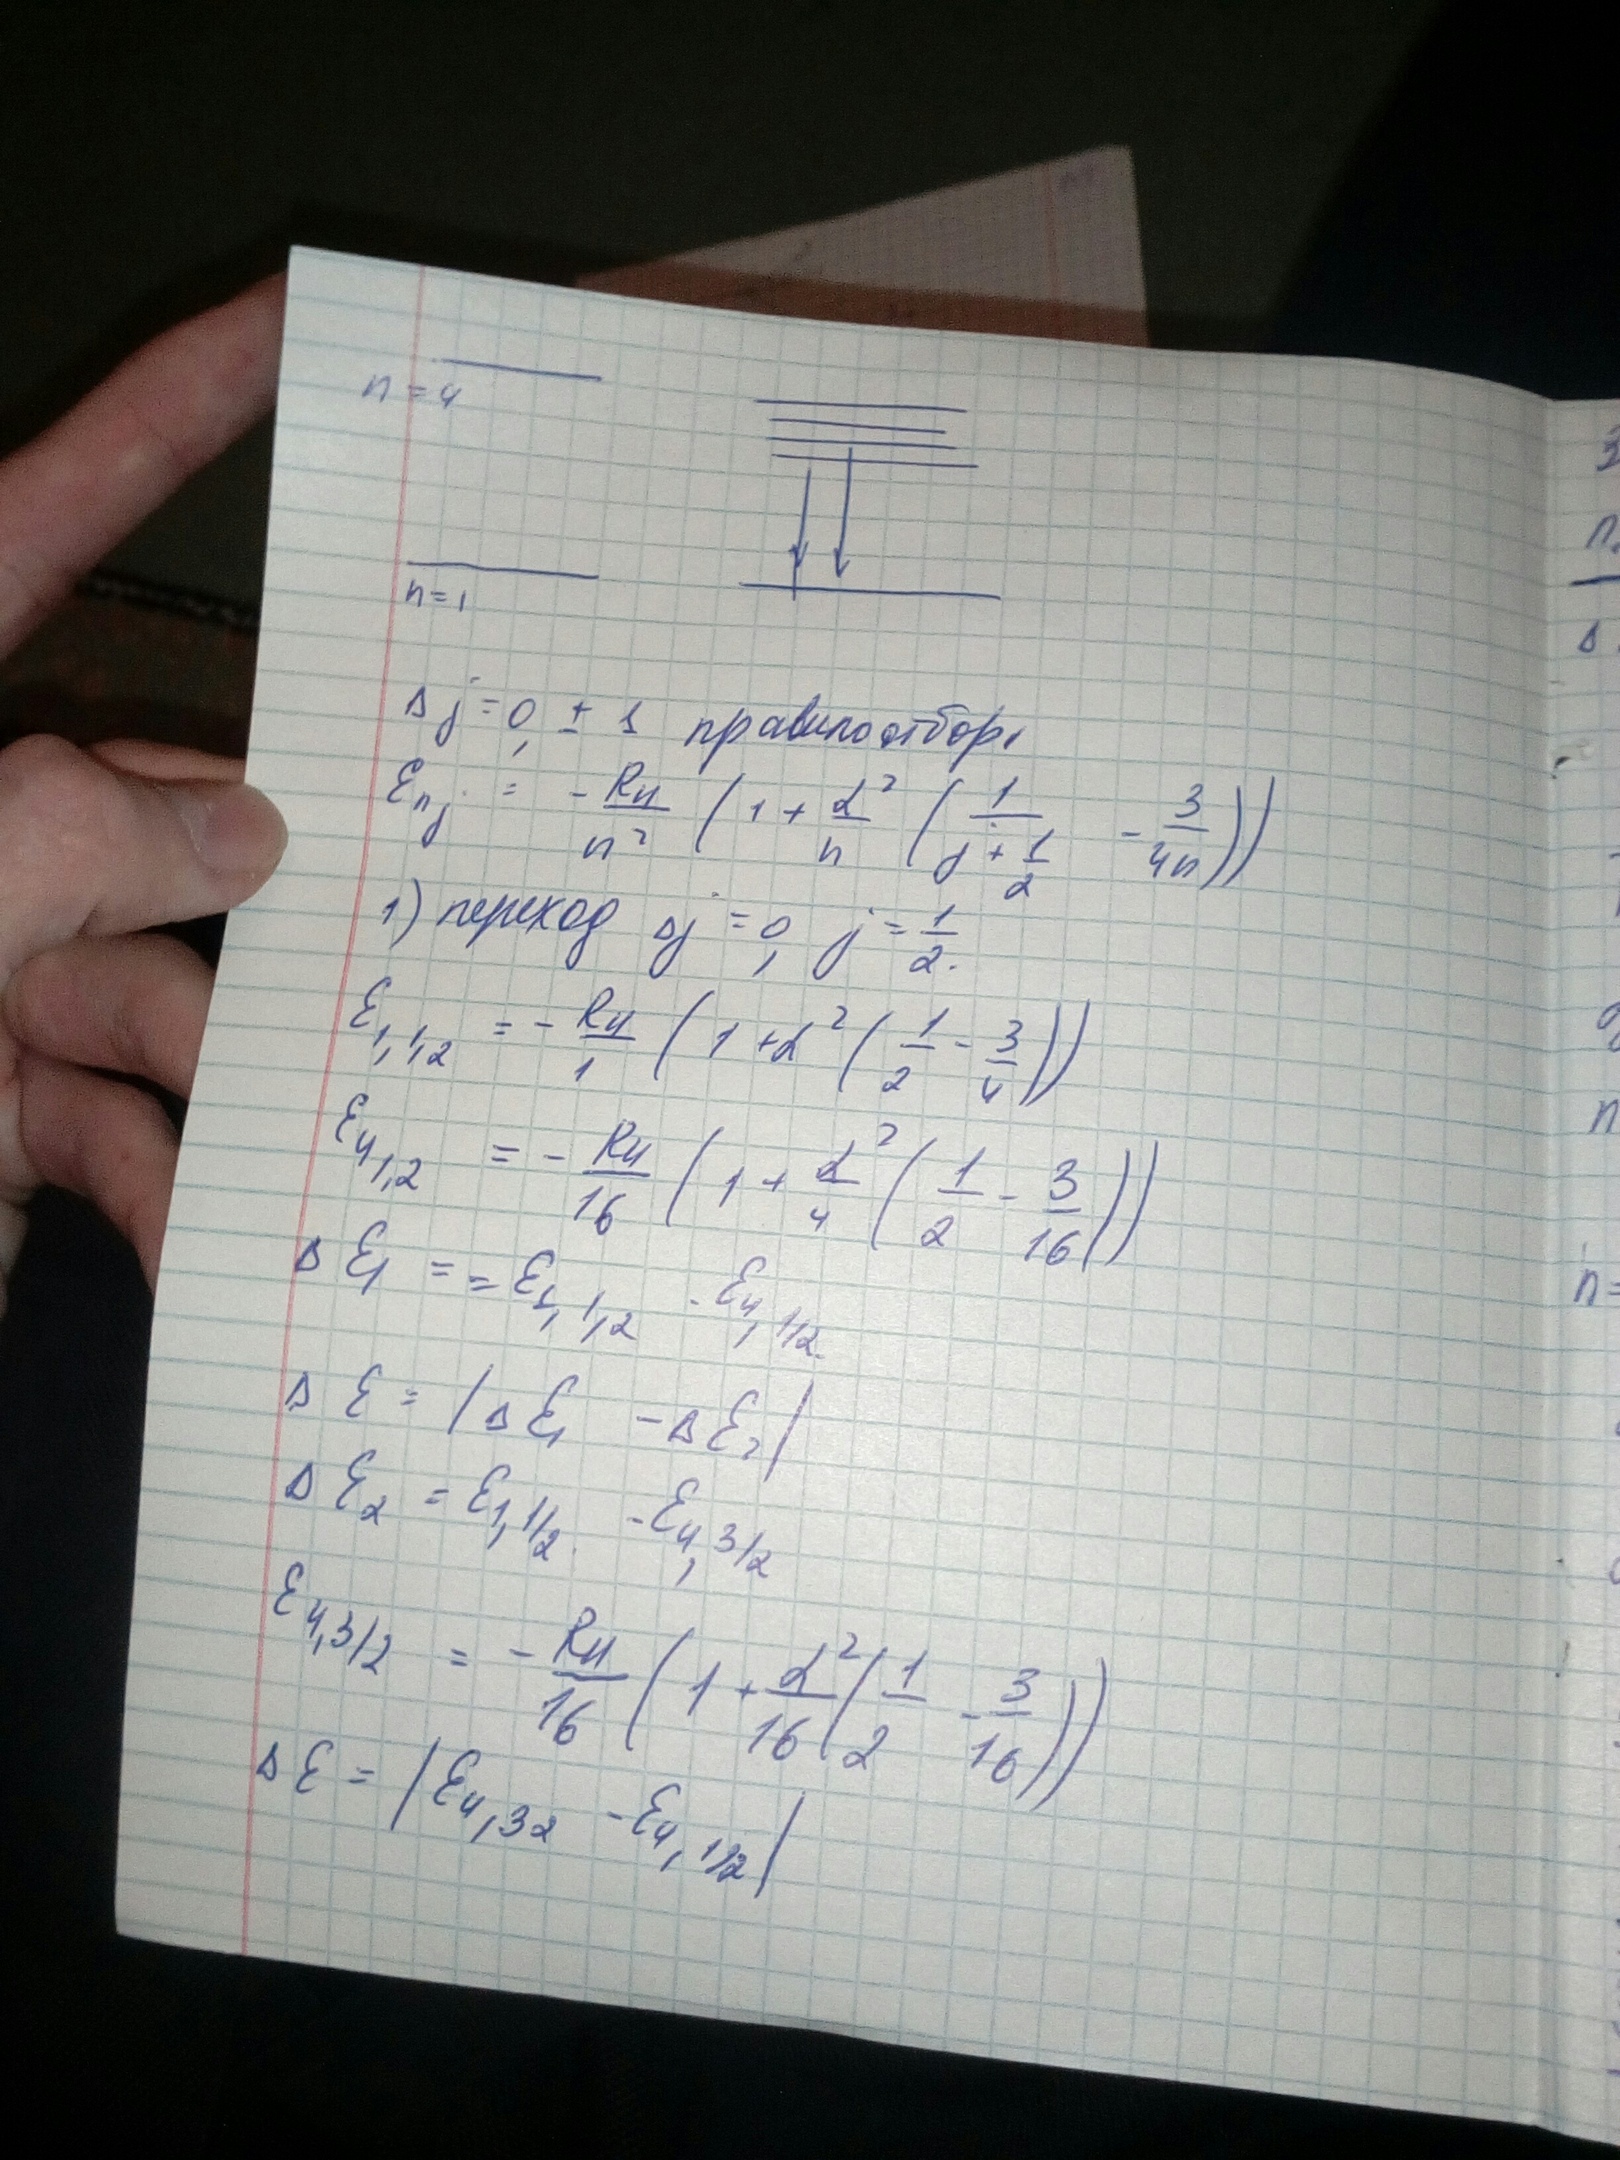 n = 4
n = 1
Δj = 0, ± 1 правило отбор.
Ɛnj = - Rн/n² (1 + α²/n (1/(j + 1/2) - 3/4n))
1) переход Δj = 0, j = 1/2.
Ɛ1,1,2 = - Rн/1 (1 + α² (1/2 - 3/4))
Ɛ4 1,2 = - Rн/16 (1 + α²/4 (1/2 - 3/16))
Δ Ɛ1 = = Ɛ1, 1,2 - Ɛ4, 1/2.
Δ Ɛ = |Δ Ɛ1 - Δ Ɛ2|
Δ Ɛ2 = Ɛ1, 1/2. - Ɛ4, 3/2
Ɛ4,3/2 = - Rн/16 (1 + α²/16 (1/2 - 3/16))
Δ Ɛ = |Ɛ4,32 - Ɛ4, 1/2|